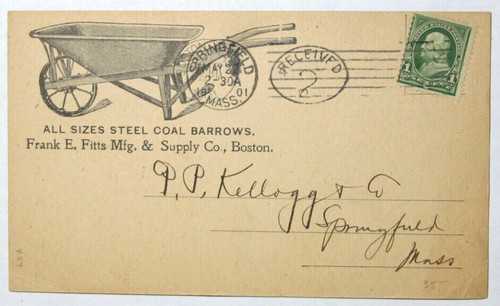 SPRINGFIELD
MAY 22
2-30A
1901
MASS.
RECEIVED
2
1 1
ALL SIZES STEEL COAL BARROWS.
Frank E. Fitts Mfg. & Supply Co., Boston.
P. P. Kellogg & Co
Springfield
Mass
35-